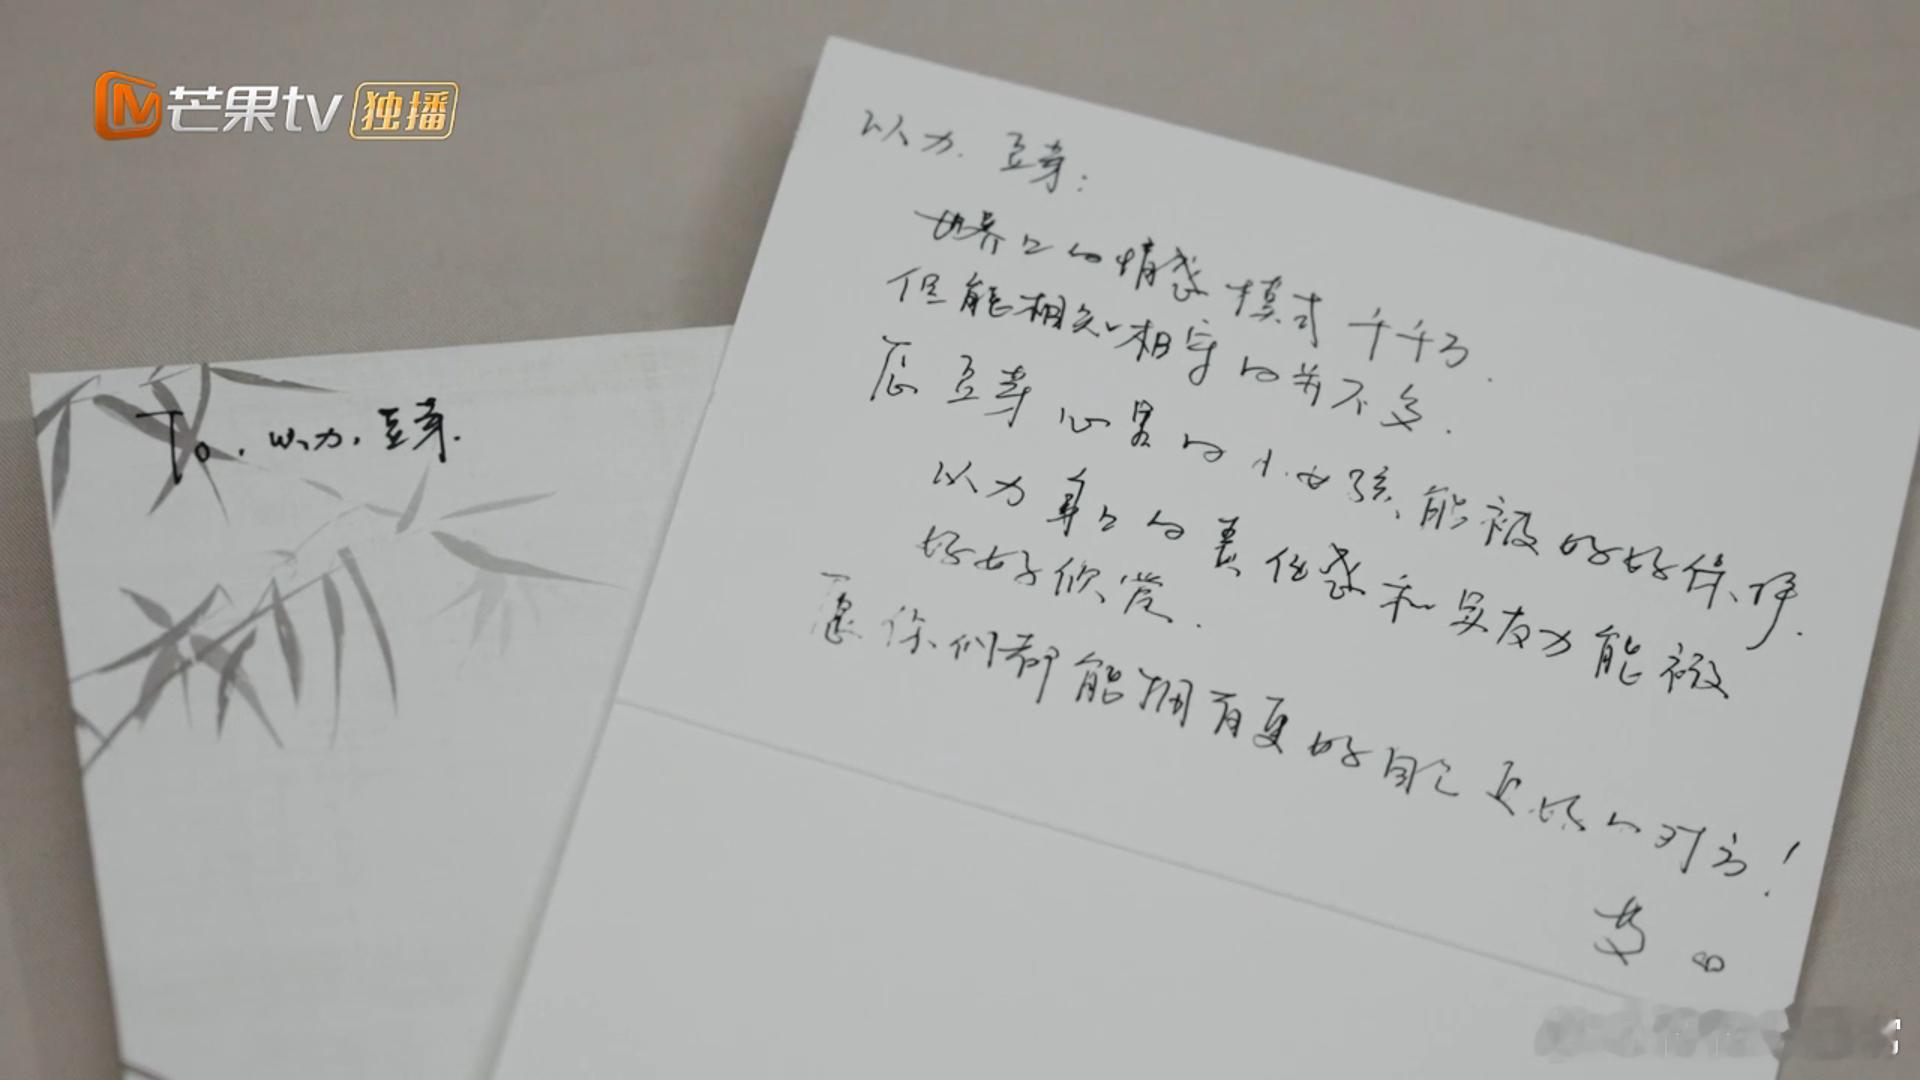 芒果tv 独播
To. 以力. 豆芽.
以力. 豆芽:
世界上的情感模式千千万.
但能相知相守的并不多.
愿豆芽心里的小女孩能被好好保护.
以力身上的责任感和男友力能被
好好欣赏.
愿你们都能拥有更好的自己更好的对方!